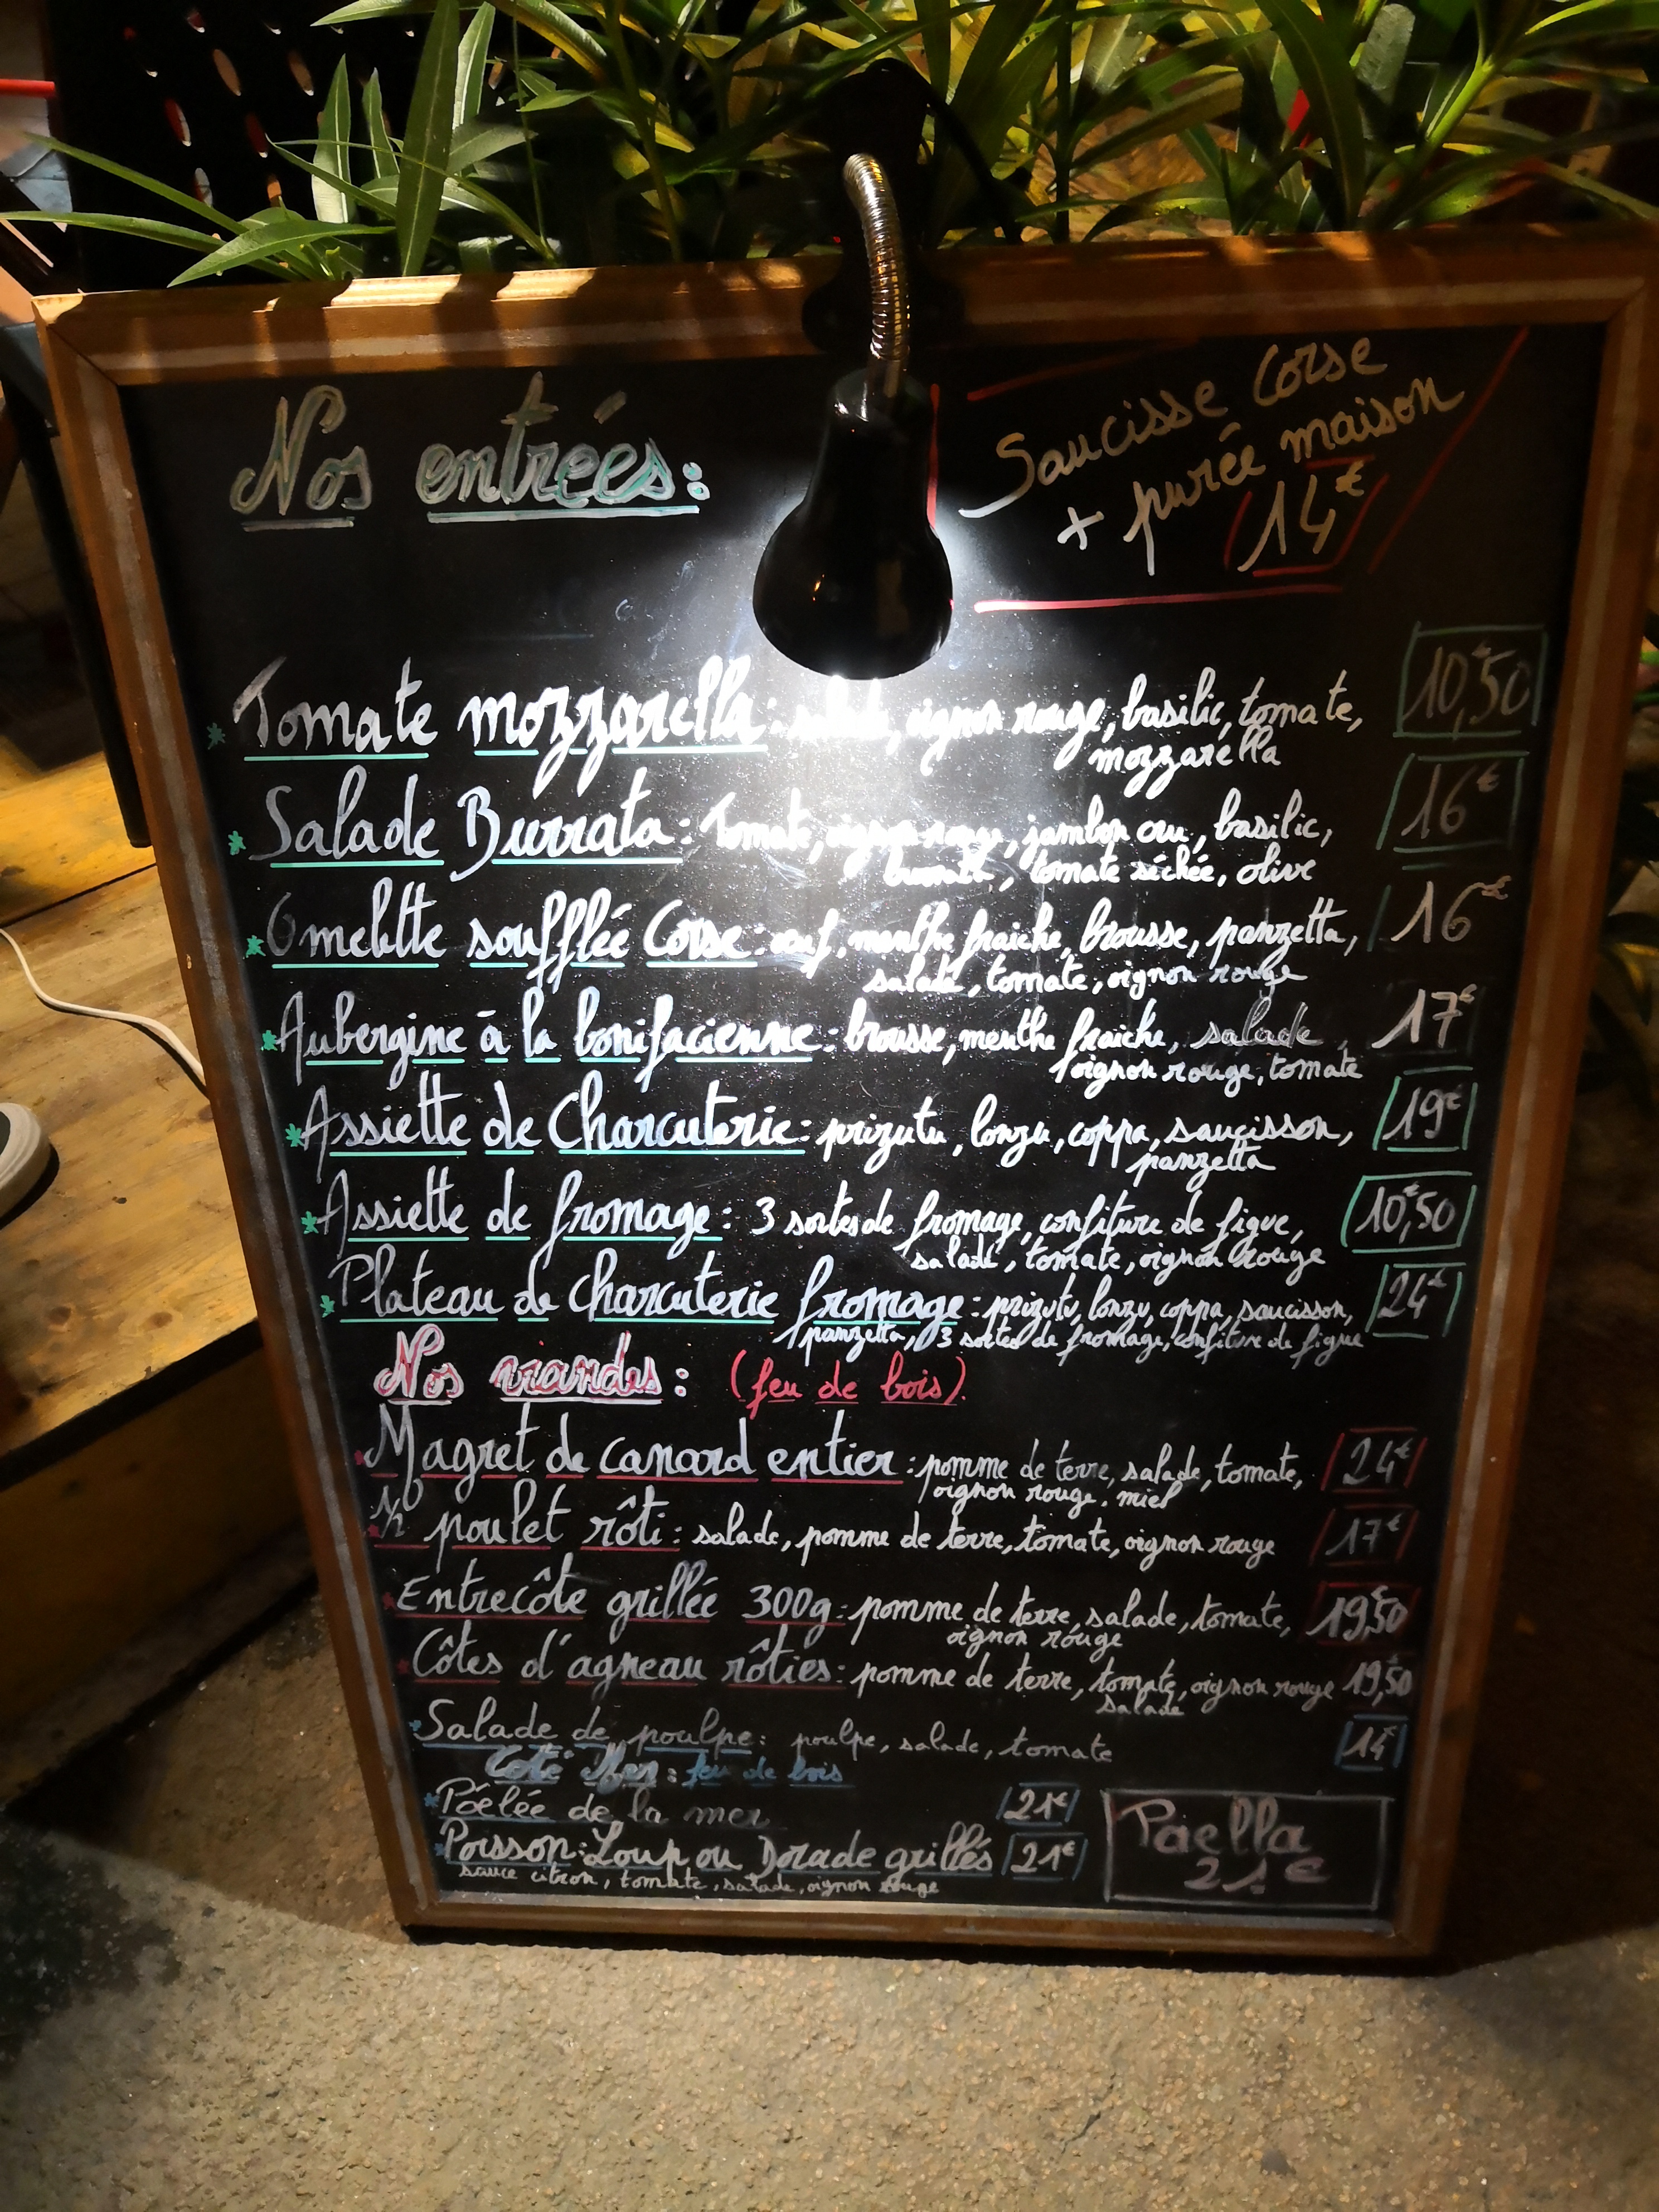 Nos entrées:
Saucisse Corse
+ purée maison
14€
* Tomate mozzarella: salade, oignon rouge, basilic, tomate, 10€,50
mozzarella
* Salade Burrata: Tomate, oignon rouge, jambon cru, basilic, 16€
burrata, tomate séchée, olive
* Omelette soufflée Corse: œuf, menthe fraiche, brousse, panzetta, 16€
salade, tomate, oignon rouge
* Aubergine à la bonifacienne: brousse, menthe fraiche, salade, 17€
oignon rouge, tomate
* Assiette de Charcuterie: prizutu, lonzu, coppa, saucisson, 19€
panzetta
* Assiette de fromage: 3 sortes de fromage, confiture de figue, 10€,50
salade, tomate, oignon rouge
* Plateau de charcuterie fromage: prizutu, lonzu, coppa, saucisson, 24€
panzetta, 3 sortes de fromage, confiture de figue
Nos viandes: (feu de bois)
* Magret de canard entier: pomme de terre, salade, tomate, 24€
oignon rouge, miel
* ½ poulet rôti: salade, pomme de terre, tomate, oignon rouge 17€
* Entrecôte grillée 300g: pomme de terre, salade, tomate, 19€,50
oignon rouge
* Côtes d'agneau rôties: pomme de terre, tomate, oignon rouge 19€,50
salade
* Salade de poulpe: poulpe, salade, tomate 14€
Coté Mer: feu de bois
* Poêlée de la mer 21€
* Poisson: Loup ou Dorade grillés 21€
sauce citron, tomate, salade, oignon rouge
Paella
21€